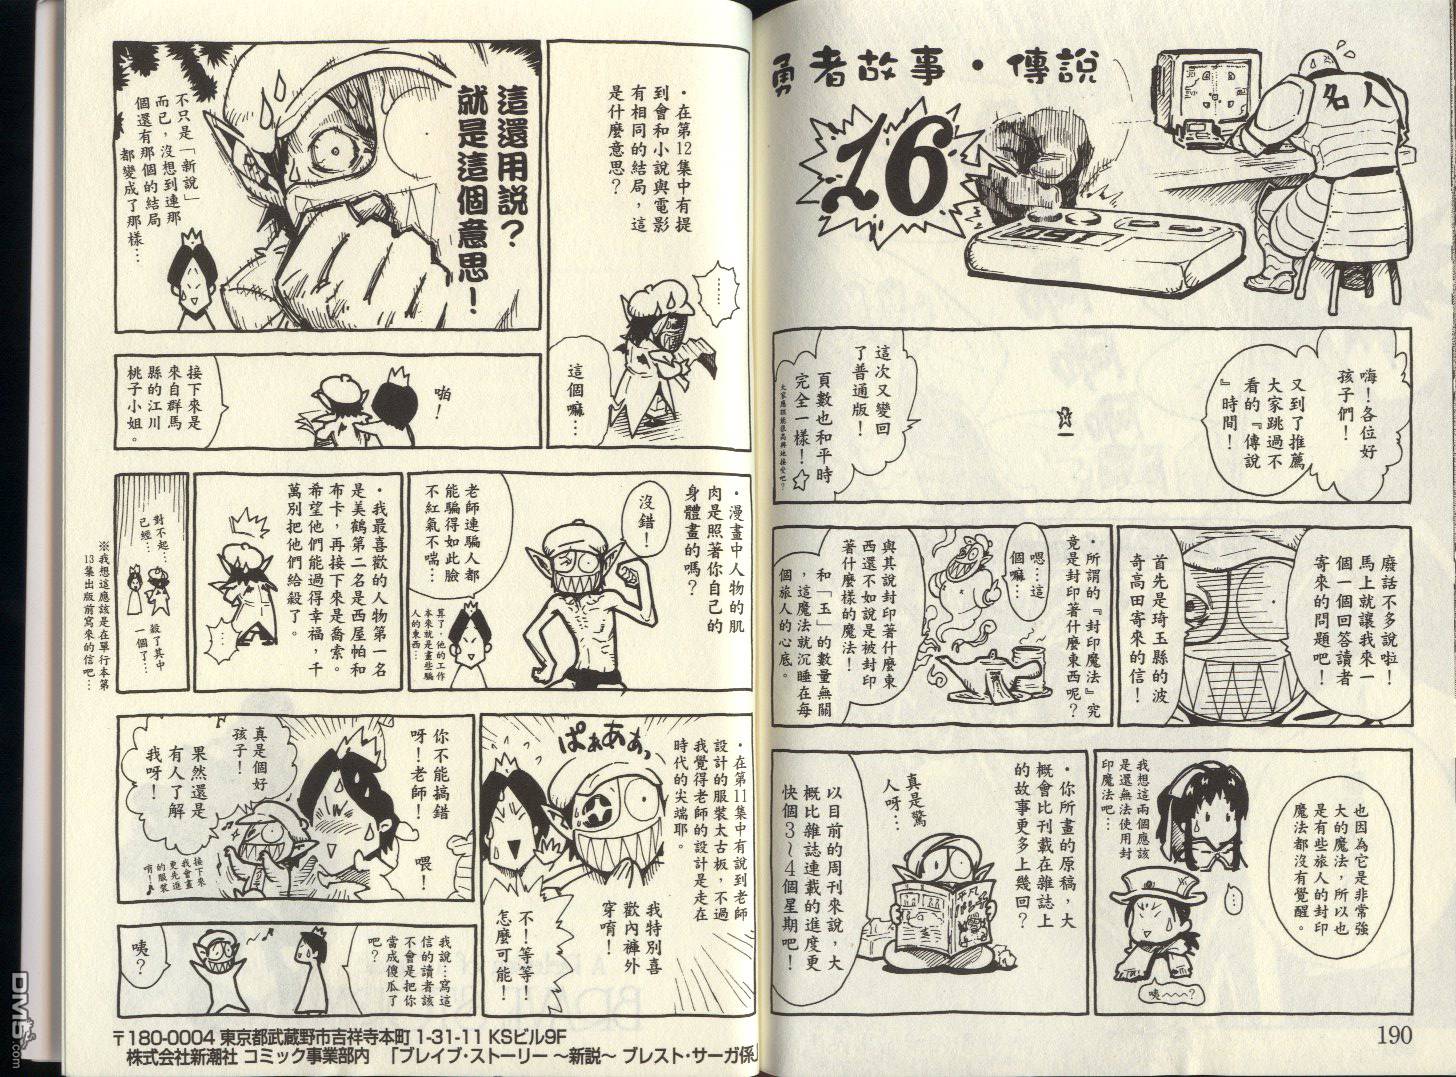 勇者故事・傳說
16
名人
嗨！各位好
孩子們！
又到了推薦
大家跳過不
看的『傳說
』時間！
這次又變回
了普通版！
頁數也和平時
完全一樣！☆
廢話不多說啦！
馬上就讓我來一
個一個回答讀者
寄來的問題吧！
首先是琦玉縣的波
奇高田寄來的信！
・所謂的『封印魔法』究
竟是封印著什麼東西呢？
嗯…這
個嘛…
與其說封印著什麼東
西還不如說是被封印
著什麼樣的魔法！
和「玉」的數量無關
，這魔法就沉睡在每
個旅人的心底。
也因為它是非常強
大的魔法，所以也
是有些旅人的封印
魔法都沒有覺醒。
我想這兩個應該
是還無法使用封
印魔法吧…
…
咦～～～？
・你所畫的原稿，大
概會比刊載在雜誌上
的故事更多上幾回？
真是驚
人呀…
以目前的周刊來說，大
概比雜誌連載的進度更
快個3～4個星期吧！
190
・在第12集中有提
到會和小說與電影
有相同的結局，這
是什麼意思？
……
這個嘛…
這還用說？
就是這個意思！
不只是「新說」
而已，沒想到連那
個還有那個的結局
都變成了那樣…
啪！
接下來是
來自群馬
縣的江川
桃子小姐。
・漫畫中人物的肌
肉是照著你自己的
身體畫的嗎？
沒錯！
老師連騙人都
能騙得如此臉
不紅氣不喘…
算了，他的工作
本來就是畫些騙
人的東西…
・我最喜歡的人物第一名
是美鶴第二名是西屋帕和
布卡，再接下來是喬索。
希望他們能過得幸福，千
萬別把他們給殺了。
…
對不起…
已經…
殺了其中
一個了…
※我想這應該是在單行本第
13集出版前寫來的信吧…
・在第11集中有說到老師
設計的服裝太古板，不過
我覺得老師的設計是走在
時代的尖端耶。
ぱぁあぁっ
我特別喜
歡內褲外
穿唷！
不！等等！
怎麼可能！
你不能搞錯
呀！老師！
喂！
真是個好
孩子！
果然還是
有人了解
我呀！
接下來
我會畫
更先進
的服裝
唷！
我說…寫這
信的讀者該
不會是把你
當成傻瓜了
吧？
咦？
〒180-0004 東京都武蔵野市吉祥寺本町 1-31-11 KSビル9F
株式会社新潮社 コミック事業部内 「ブレイブ・ストーリー ～新説～ ブレスト・サーガ係」
DM5.com